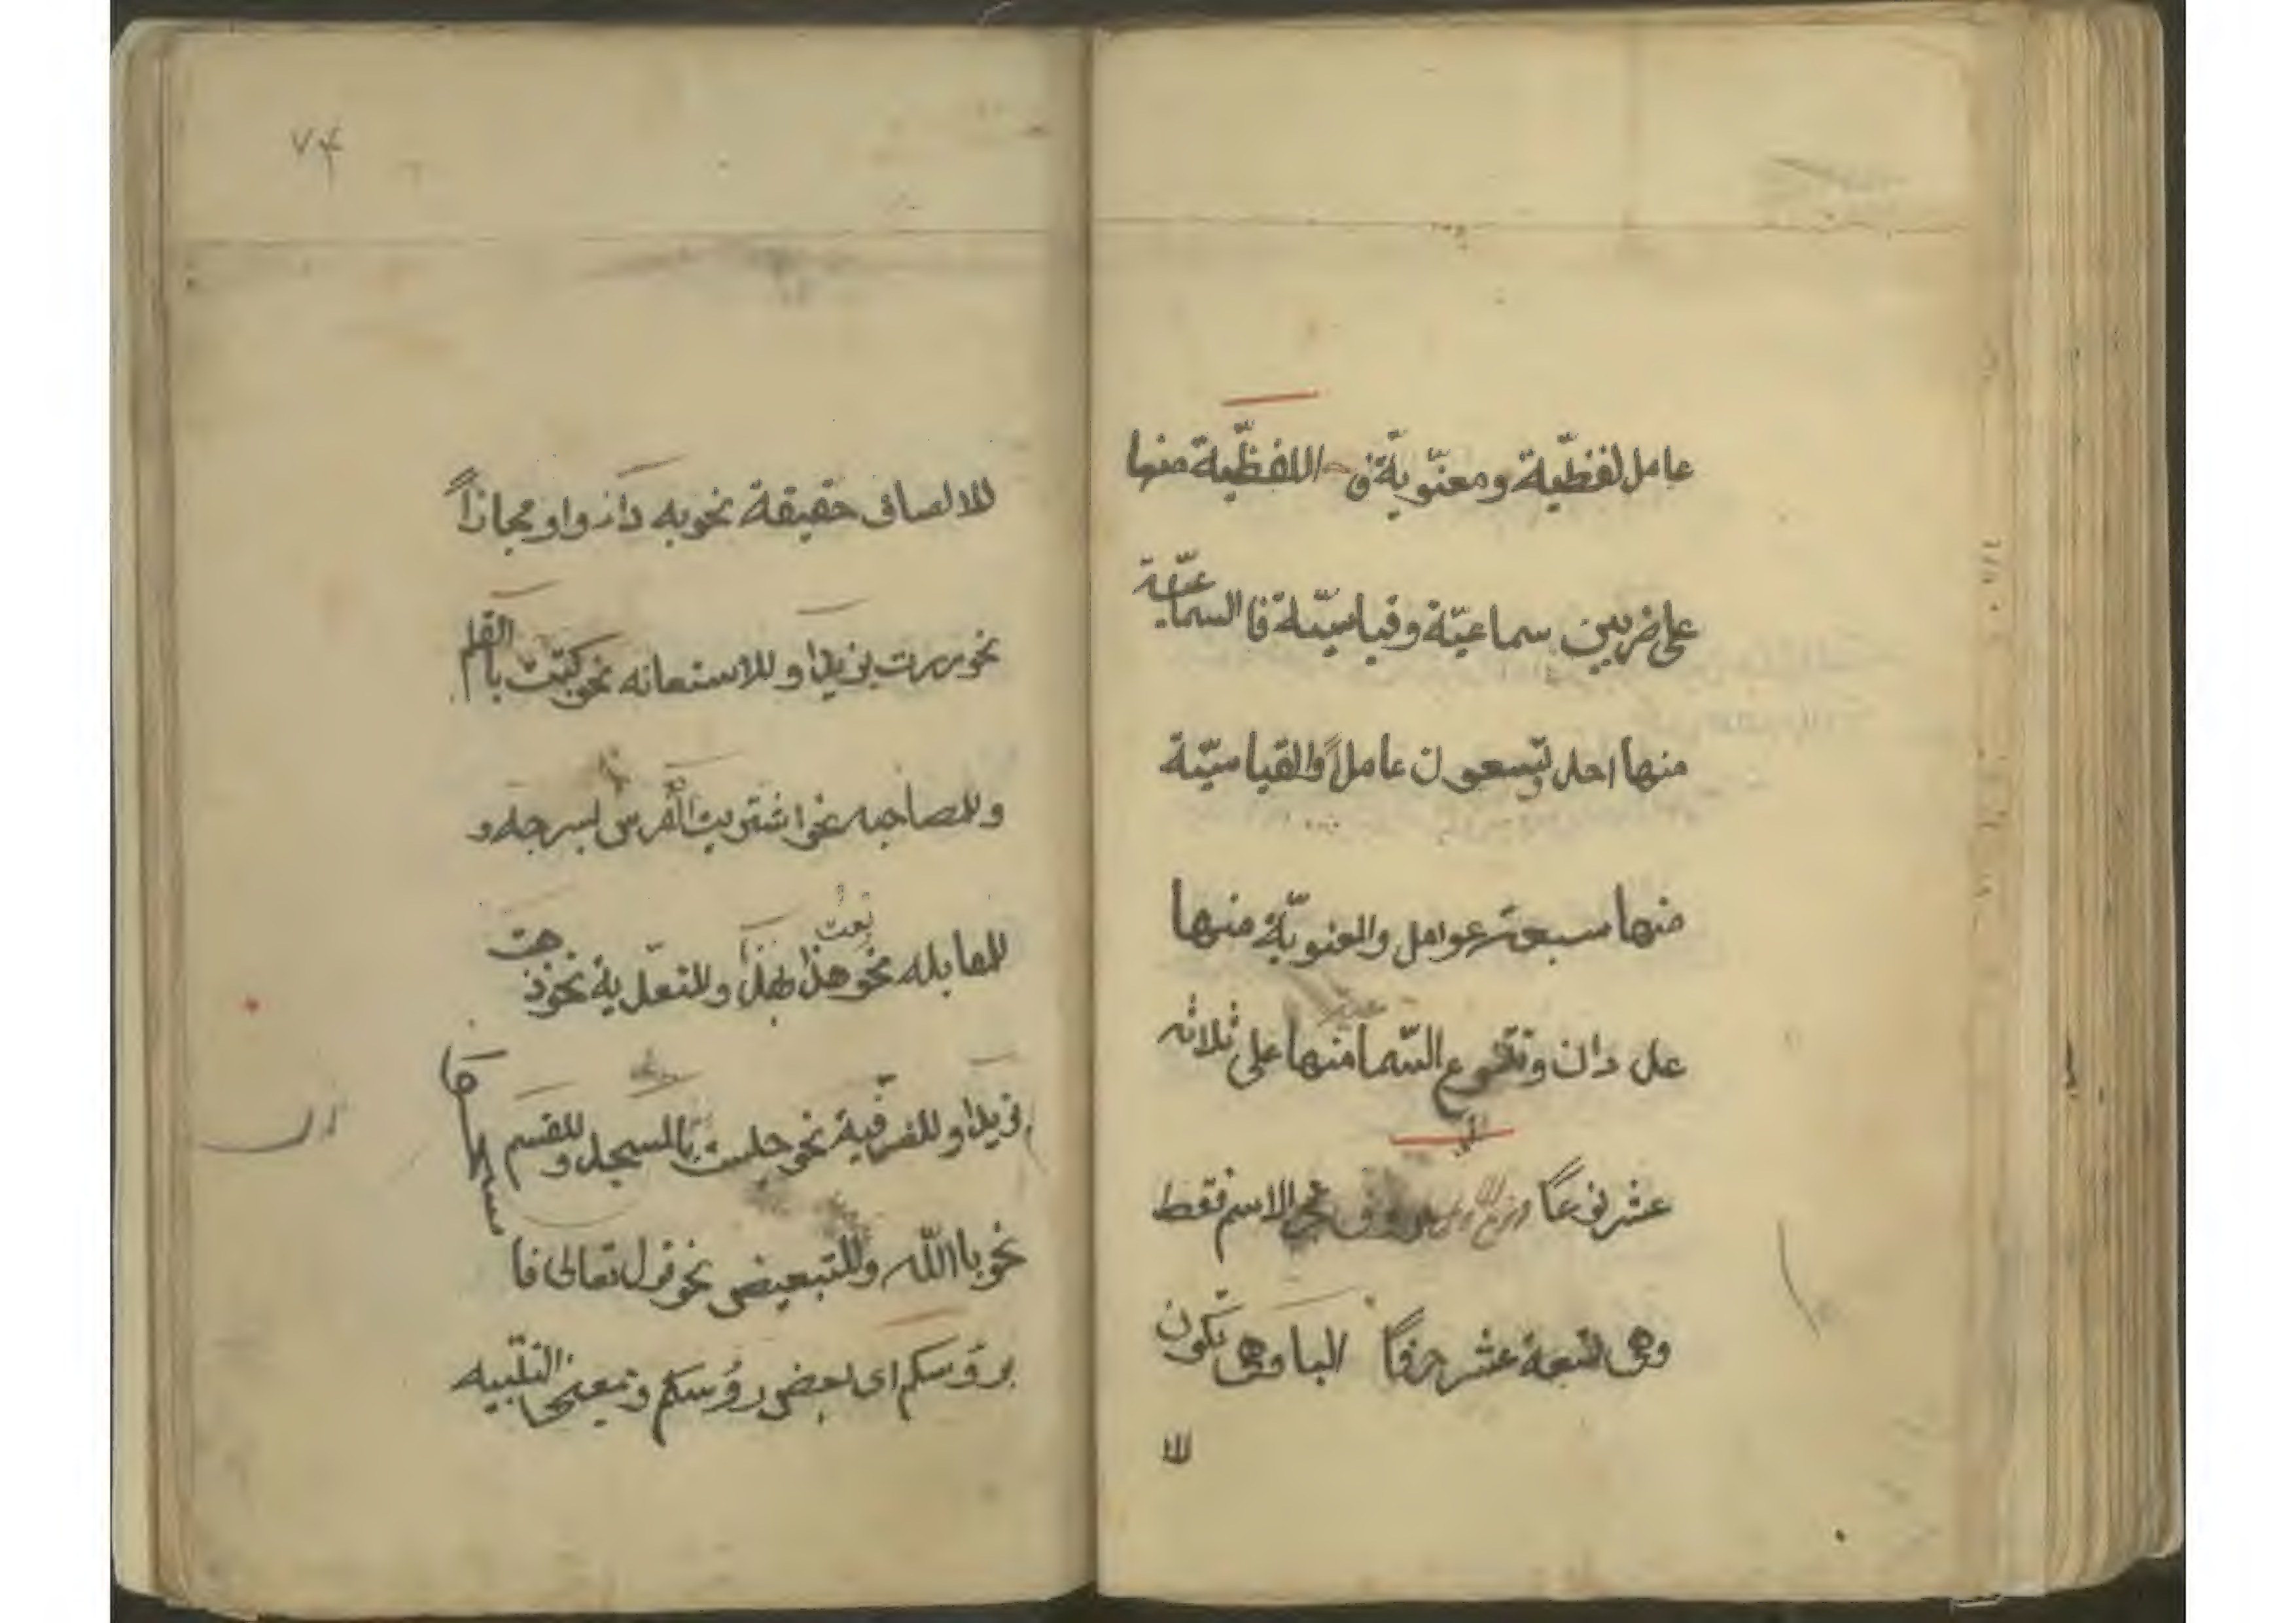 عامل لفظيّة ومعنويّة فى اللفظّية منها
على ضربين سماعيّة وقياسيّة فا السماعيّة
منها احد وتسعون عاملاً والقياسيّة
منها سبعة عوامل والمعنويّة منها
عددان وتتنوع السّما منها على ثلاثه
عشر نوعاً الاسم فقط
وهى تسعة عشر حرفاً البا وهى تكون
للا
٧٤
للالصاق حقيقة نحو به داء واو مجازاً
نحو مررت بزيد او للاستعانه نحو كتبت بالقلم
وللمصاحبه نحو اشتريت الفرس بسرجه و
للمقابله نحو بعت هذا بهذا وللتعدية نحو ذهبت
بزيد او للظرفية نحو جلست بالمسجد وللقسم
نحو باالله وللتبعيض نحو قول تعالى فا
مسحوا
بروسكم اى بعض روسكم وبمعنى